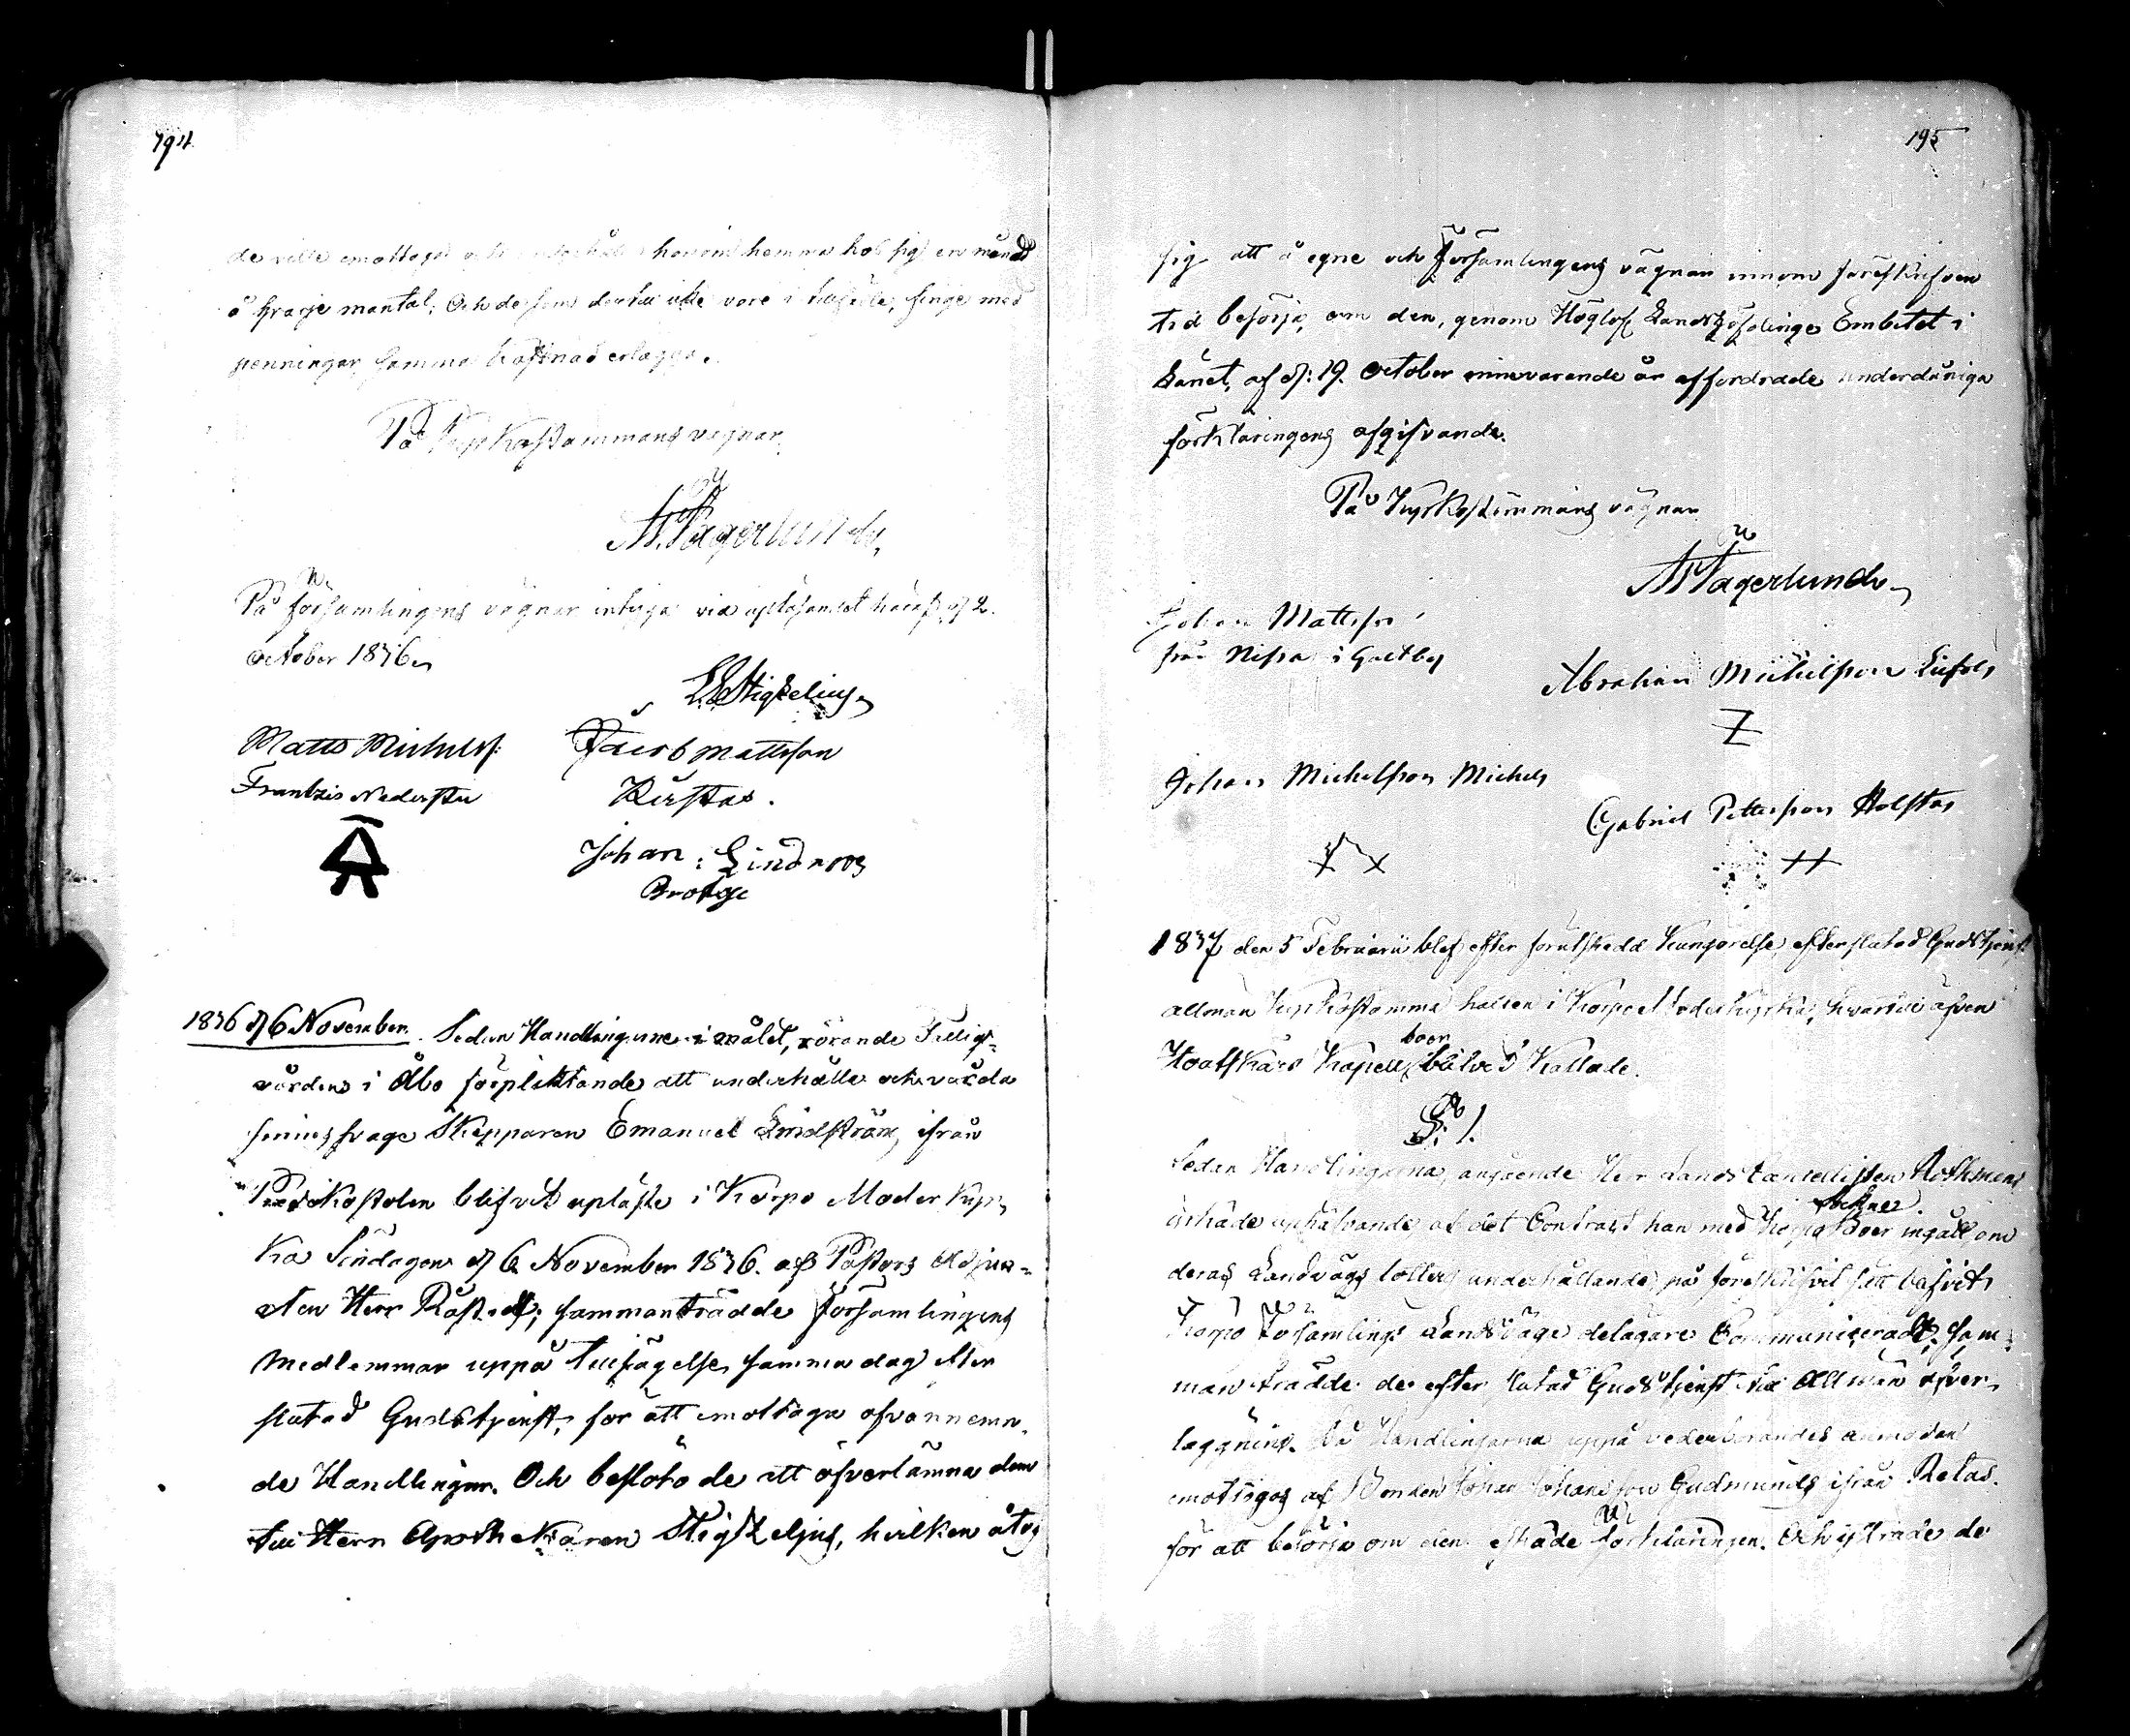 194.
de ville emottaga och underhålla honom hemma hos sig en månad
å hvarje mantal; Och de som dertill icke vore i tillfälle, finge med
penningar samma kostnad erlägga.
På Kyrkostämmans vägnar.
A. Fågerlund.
På Församlingens vägnar intyga vid upläsandet häraf, d 2.
October 1836.
Stigzelius
Matts Michelss: Jacob Mattsson
Frantzis Nederstu Kirstas.
Johan: Lindroos
Brotje
1836 d 6 November. Sedan Handlingarne i målet, rörande Fattig-
vårdens i Åbo förpliktande att underhålla och vårda
sinnessvage Skepparen Emanuel Lindström, ifrån
Predikostolen blifvit upläste i Korpo Moder Kyr-
ka Söndagen d 6 November 1836. af Pastors Adjunc-
ten Herr ; sammanträdde Församlingens
medlemmar uppå tillsägelse, samma dag efter
slutad Gudstjenst, för att emottaga ofvannemn-
de Handlingar. Och beslöto de att öfverlämna dem
till Herr Apothekaren Stigzeljus, hvilken åtog
195
sig att å egne och Församlingens vägnar innom föreskrifven
tid besörja om den, genom Höglofl Landshöfdinge Embetet i
Länet, af d: 19. October innevarande år affordrade underdåniga
förklaringens afgifvande.
På Kyrkostämmans vägnar
A Fågerlund
Johan Mattsson
från Nissa i Galtby
Abraham Michelsson
Johan Michelsson Michels
Gabriel Pettersson Holstas
1837 den 5 Februarii blef efter förutskedd Kungörelse, efter slutad Gudstjenst
allmän Kyrkostämma hållen i Korpo Moderkyrka, hvartill äfven
boer
Houtskärs Kapell blifvit kallade.
§: 1.
Sedan Handlingarna, angående Herr Lands Cancellisten
äskade uphäfvande af det Contract han med Korpo Sockne boer ingått om
deras Landvägs underhållande, på föreskrifvit sätt blifvit
Korpo Församlings Landsväga delägare Communicerade, sam-
manträdde de efter slutad Gudstjenst till Allmän öfver-
läggning. Då Handlingarna uppå vederbörandes anmodan
emottogos af Bonden Johan Johansson Gudmunds ifrån Retais
för att besörja om den äskade förklaringen. Och yttrade de